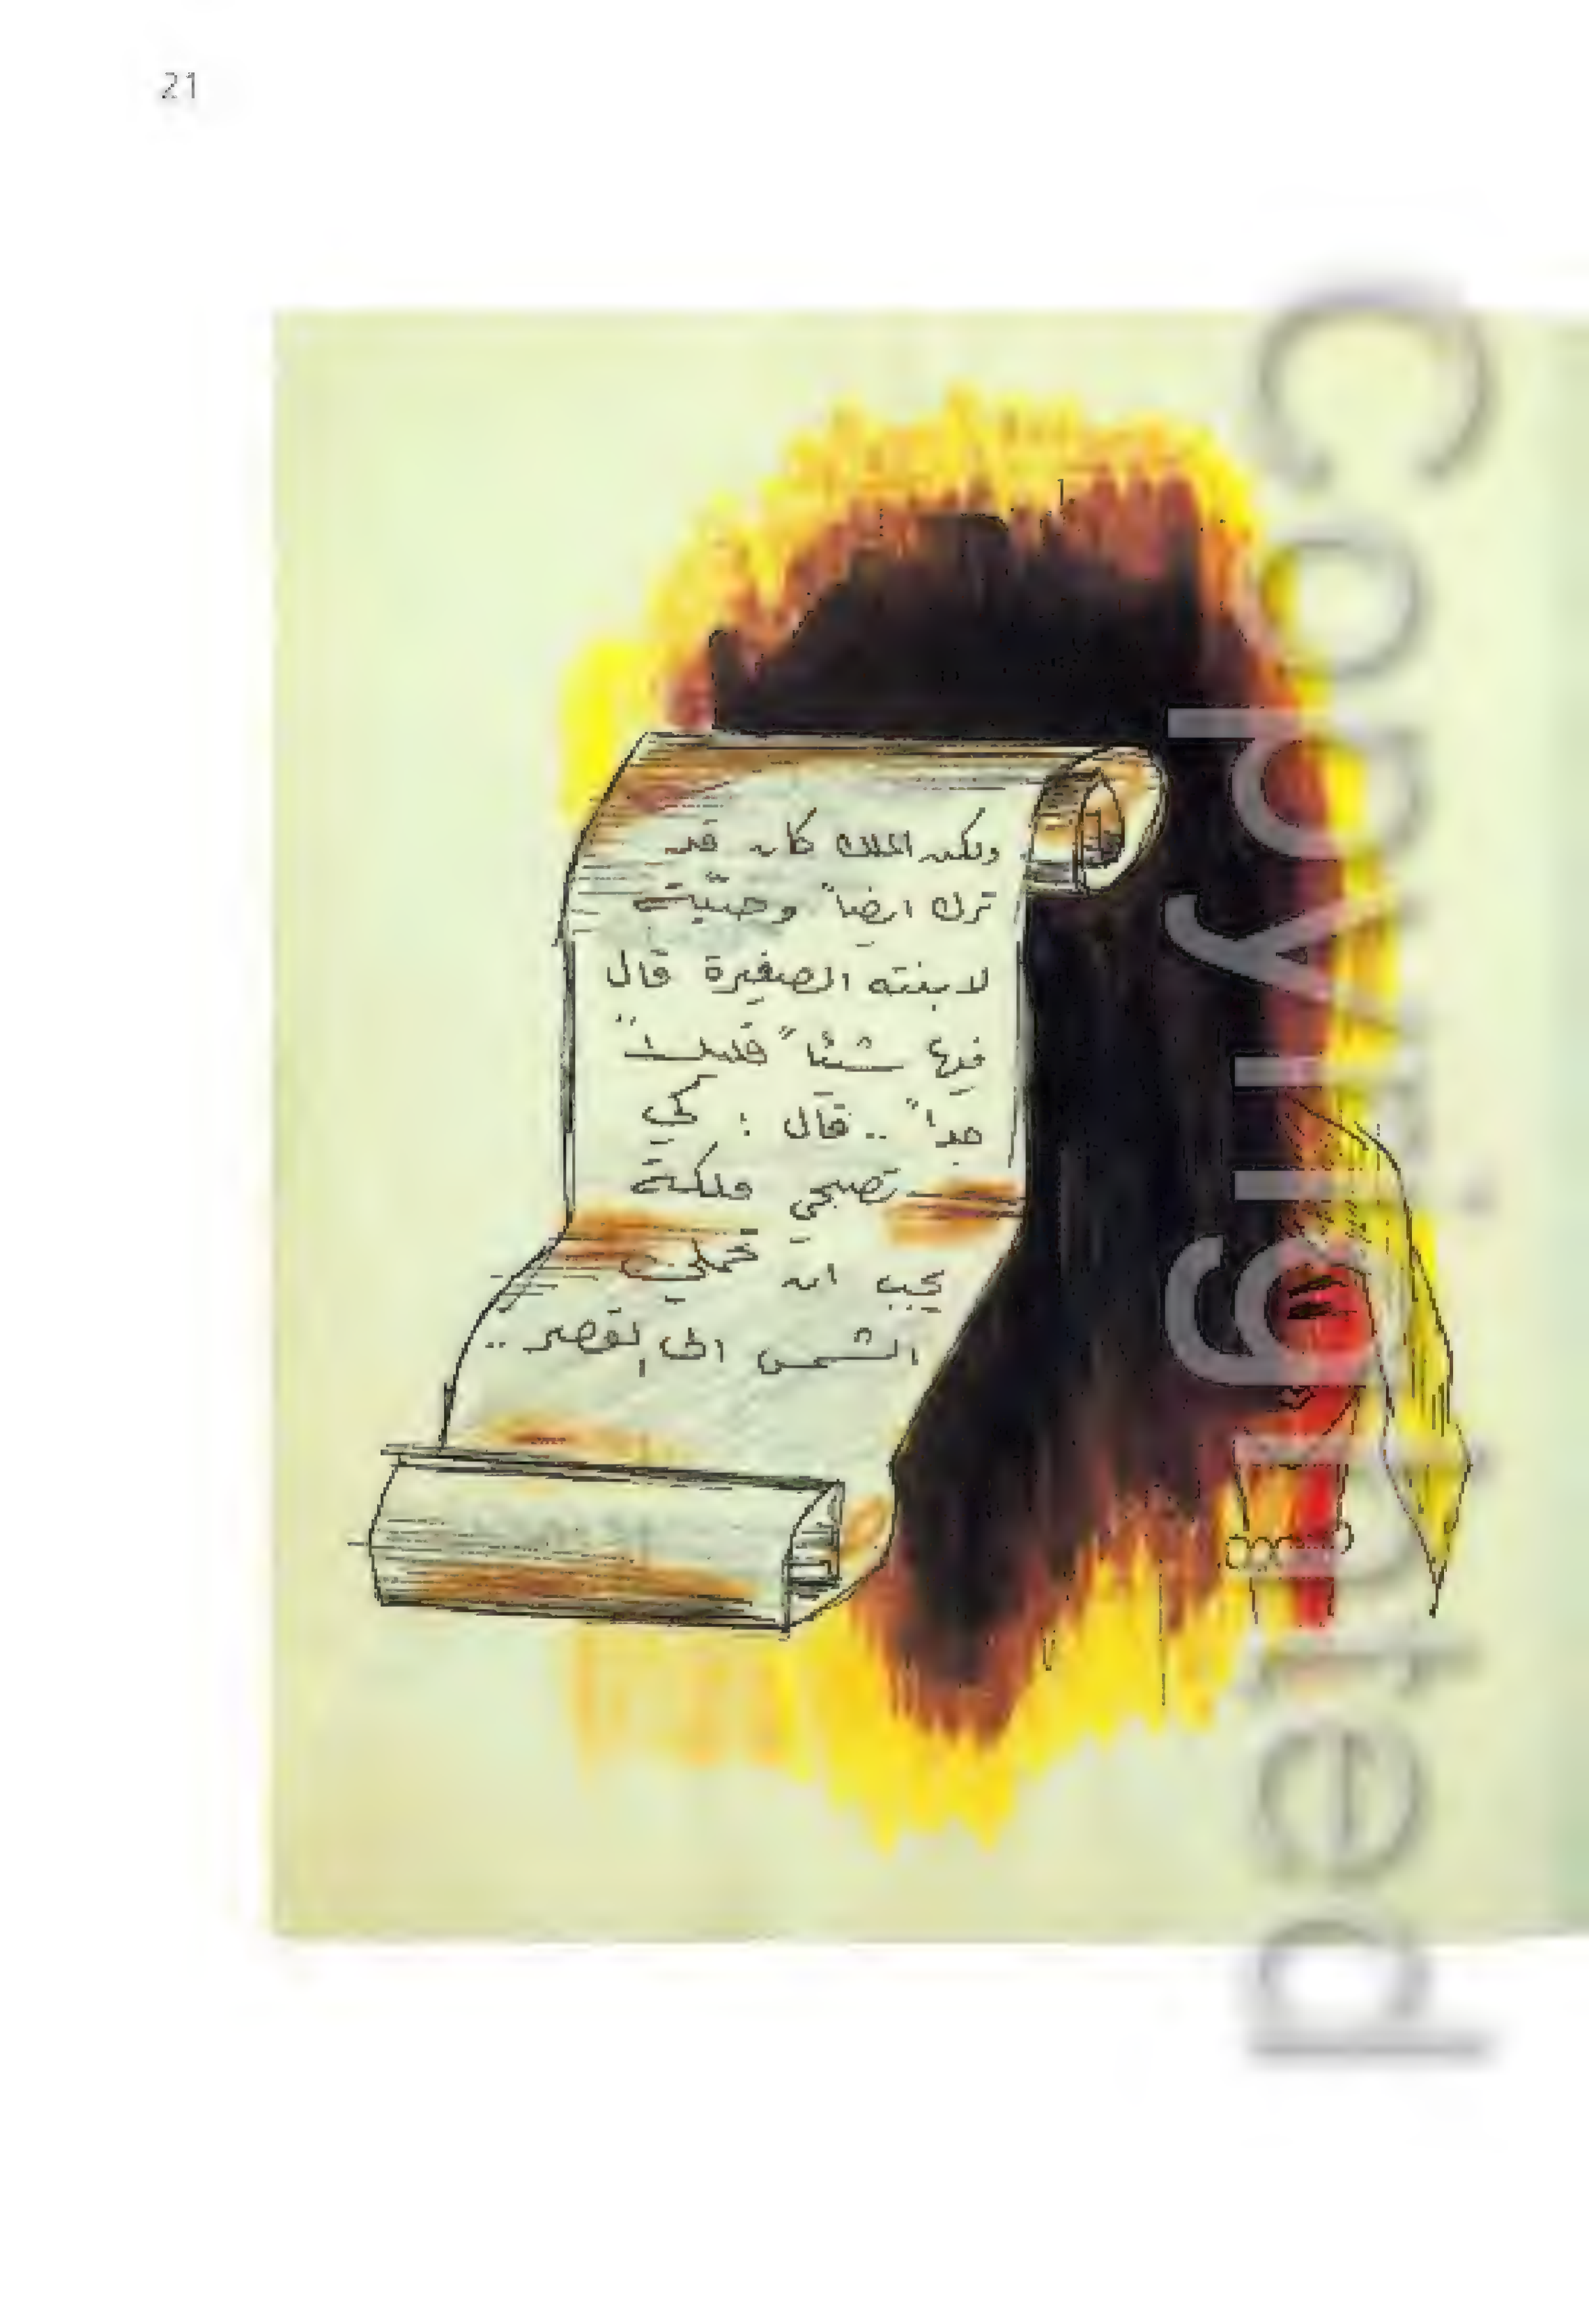 21
ولكن الملك كان قد
ترك ايضاً وصيّة
لابنته الصغيرة قال
فيها شيئاً قليلاً
جداً .. قال : كي
تصبحي ملكة
يجب ان تحملي
الشمس الى القصر ..
Copyrighted